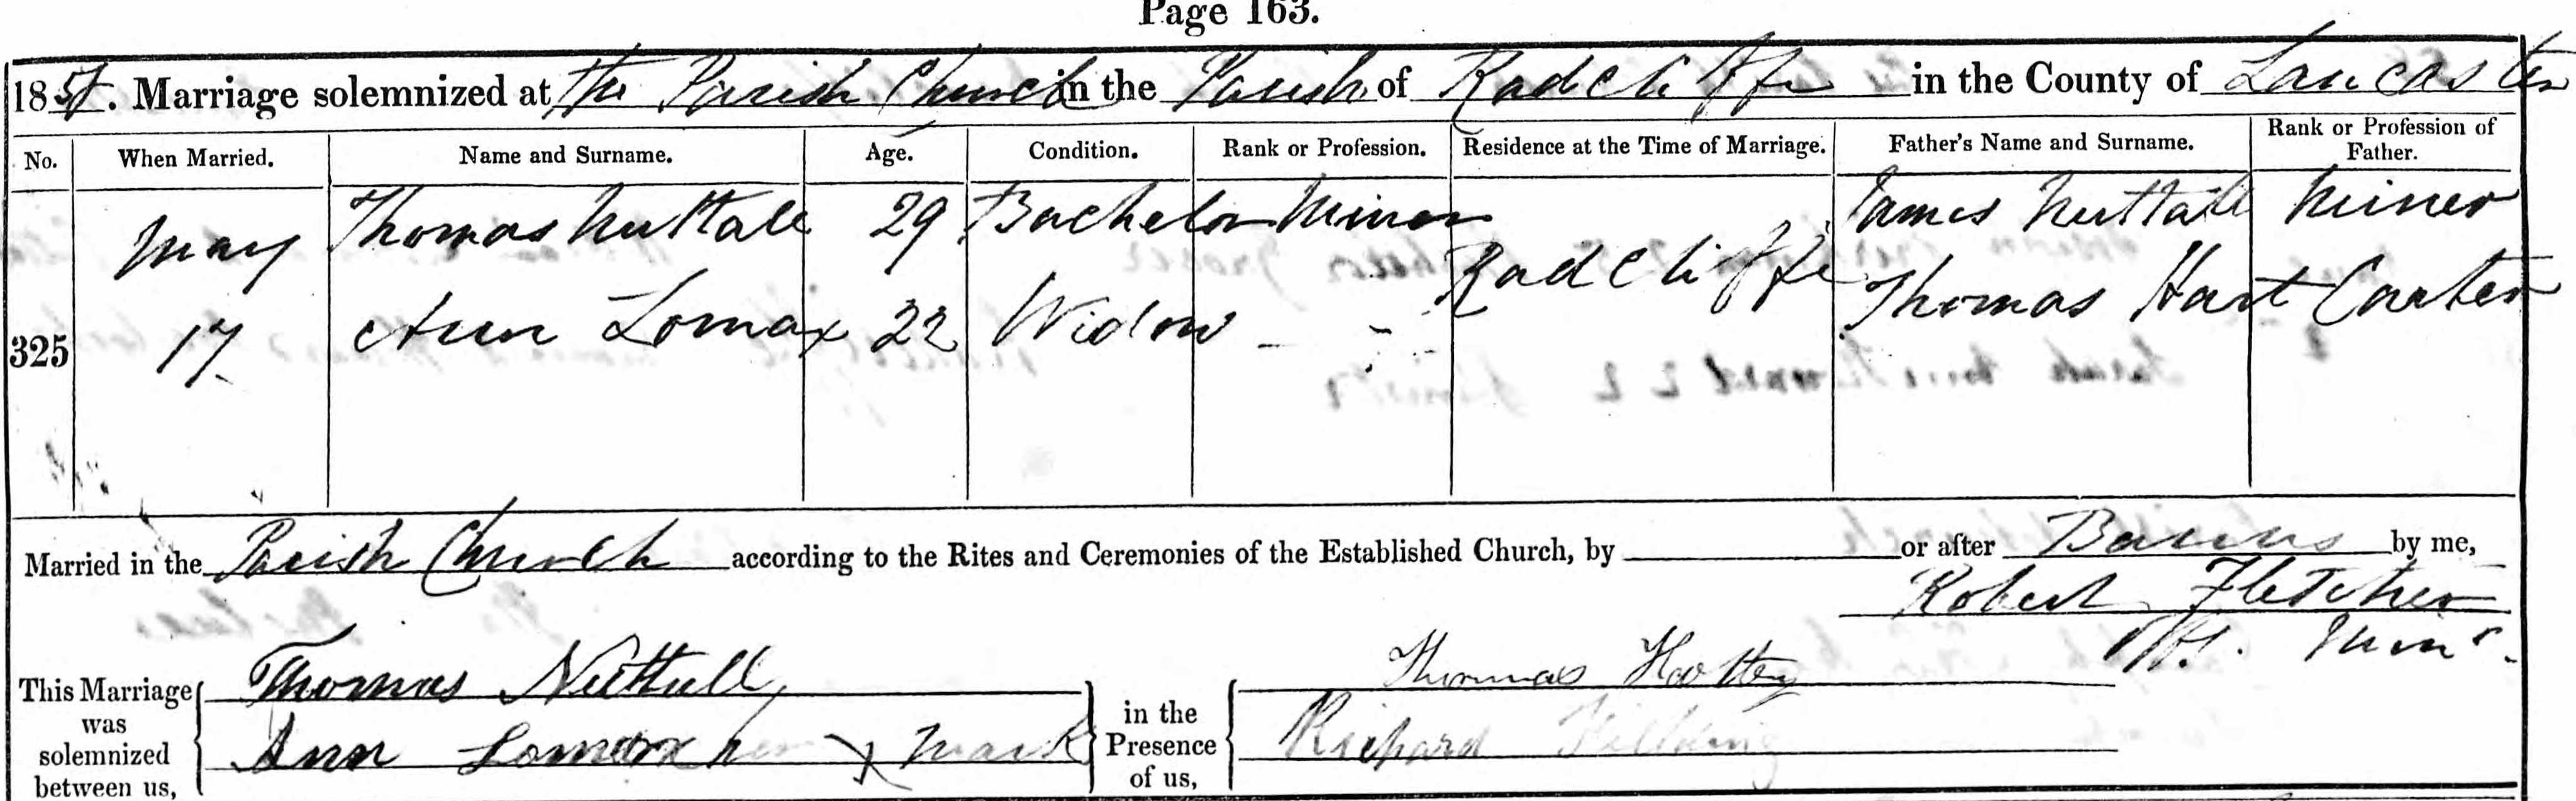 Page 163.
185 . Marriage solemnized at the Parish Church in the Parish of Radcliffe in the County of Lancaster
No. When Married. Name and Surname. Age. Condition. Rank or Profession. Residence at the Time of Marriage. Father's Name and Surname. Rank or Profession of Father.
May Thomas Nuttall 29 Bachelor Miner James Nuttall Miner
Radcliffe
325 17 Ann Lomax 22 Widow - - Thomas Hart Carter
Married in the Parish Church according to the Rites and Ceremonies of the Established Church, by or after Banns by me,
Robert Fletcher
Minr.
This Marriage was solemnized between us,
Thomas Nuttall
Ann Lomax her x mark
in the Presence of us,
Thomas
Richard